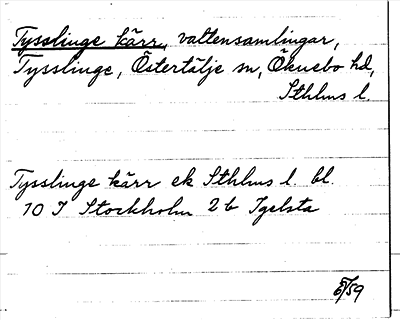 Tysslinge kärr, vattensamlingar,
Tysslinge, Östertälje sn, Öknebo hd,
Sthlms l.
Tysslinge kärr ek Sthlms l. bl.
10 I Stockholm 2 b Igelsta
5/59